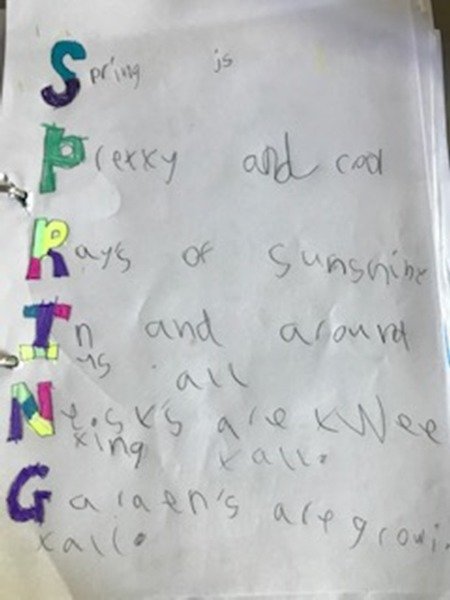 Spring is
Prexxy and cool
Rays of sumshine
In and around
us all
Ne.sk's are xwee
xing xall.
Garaen's are growi.
xall.